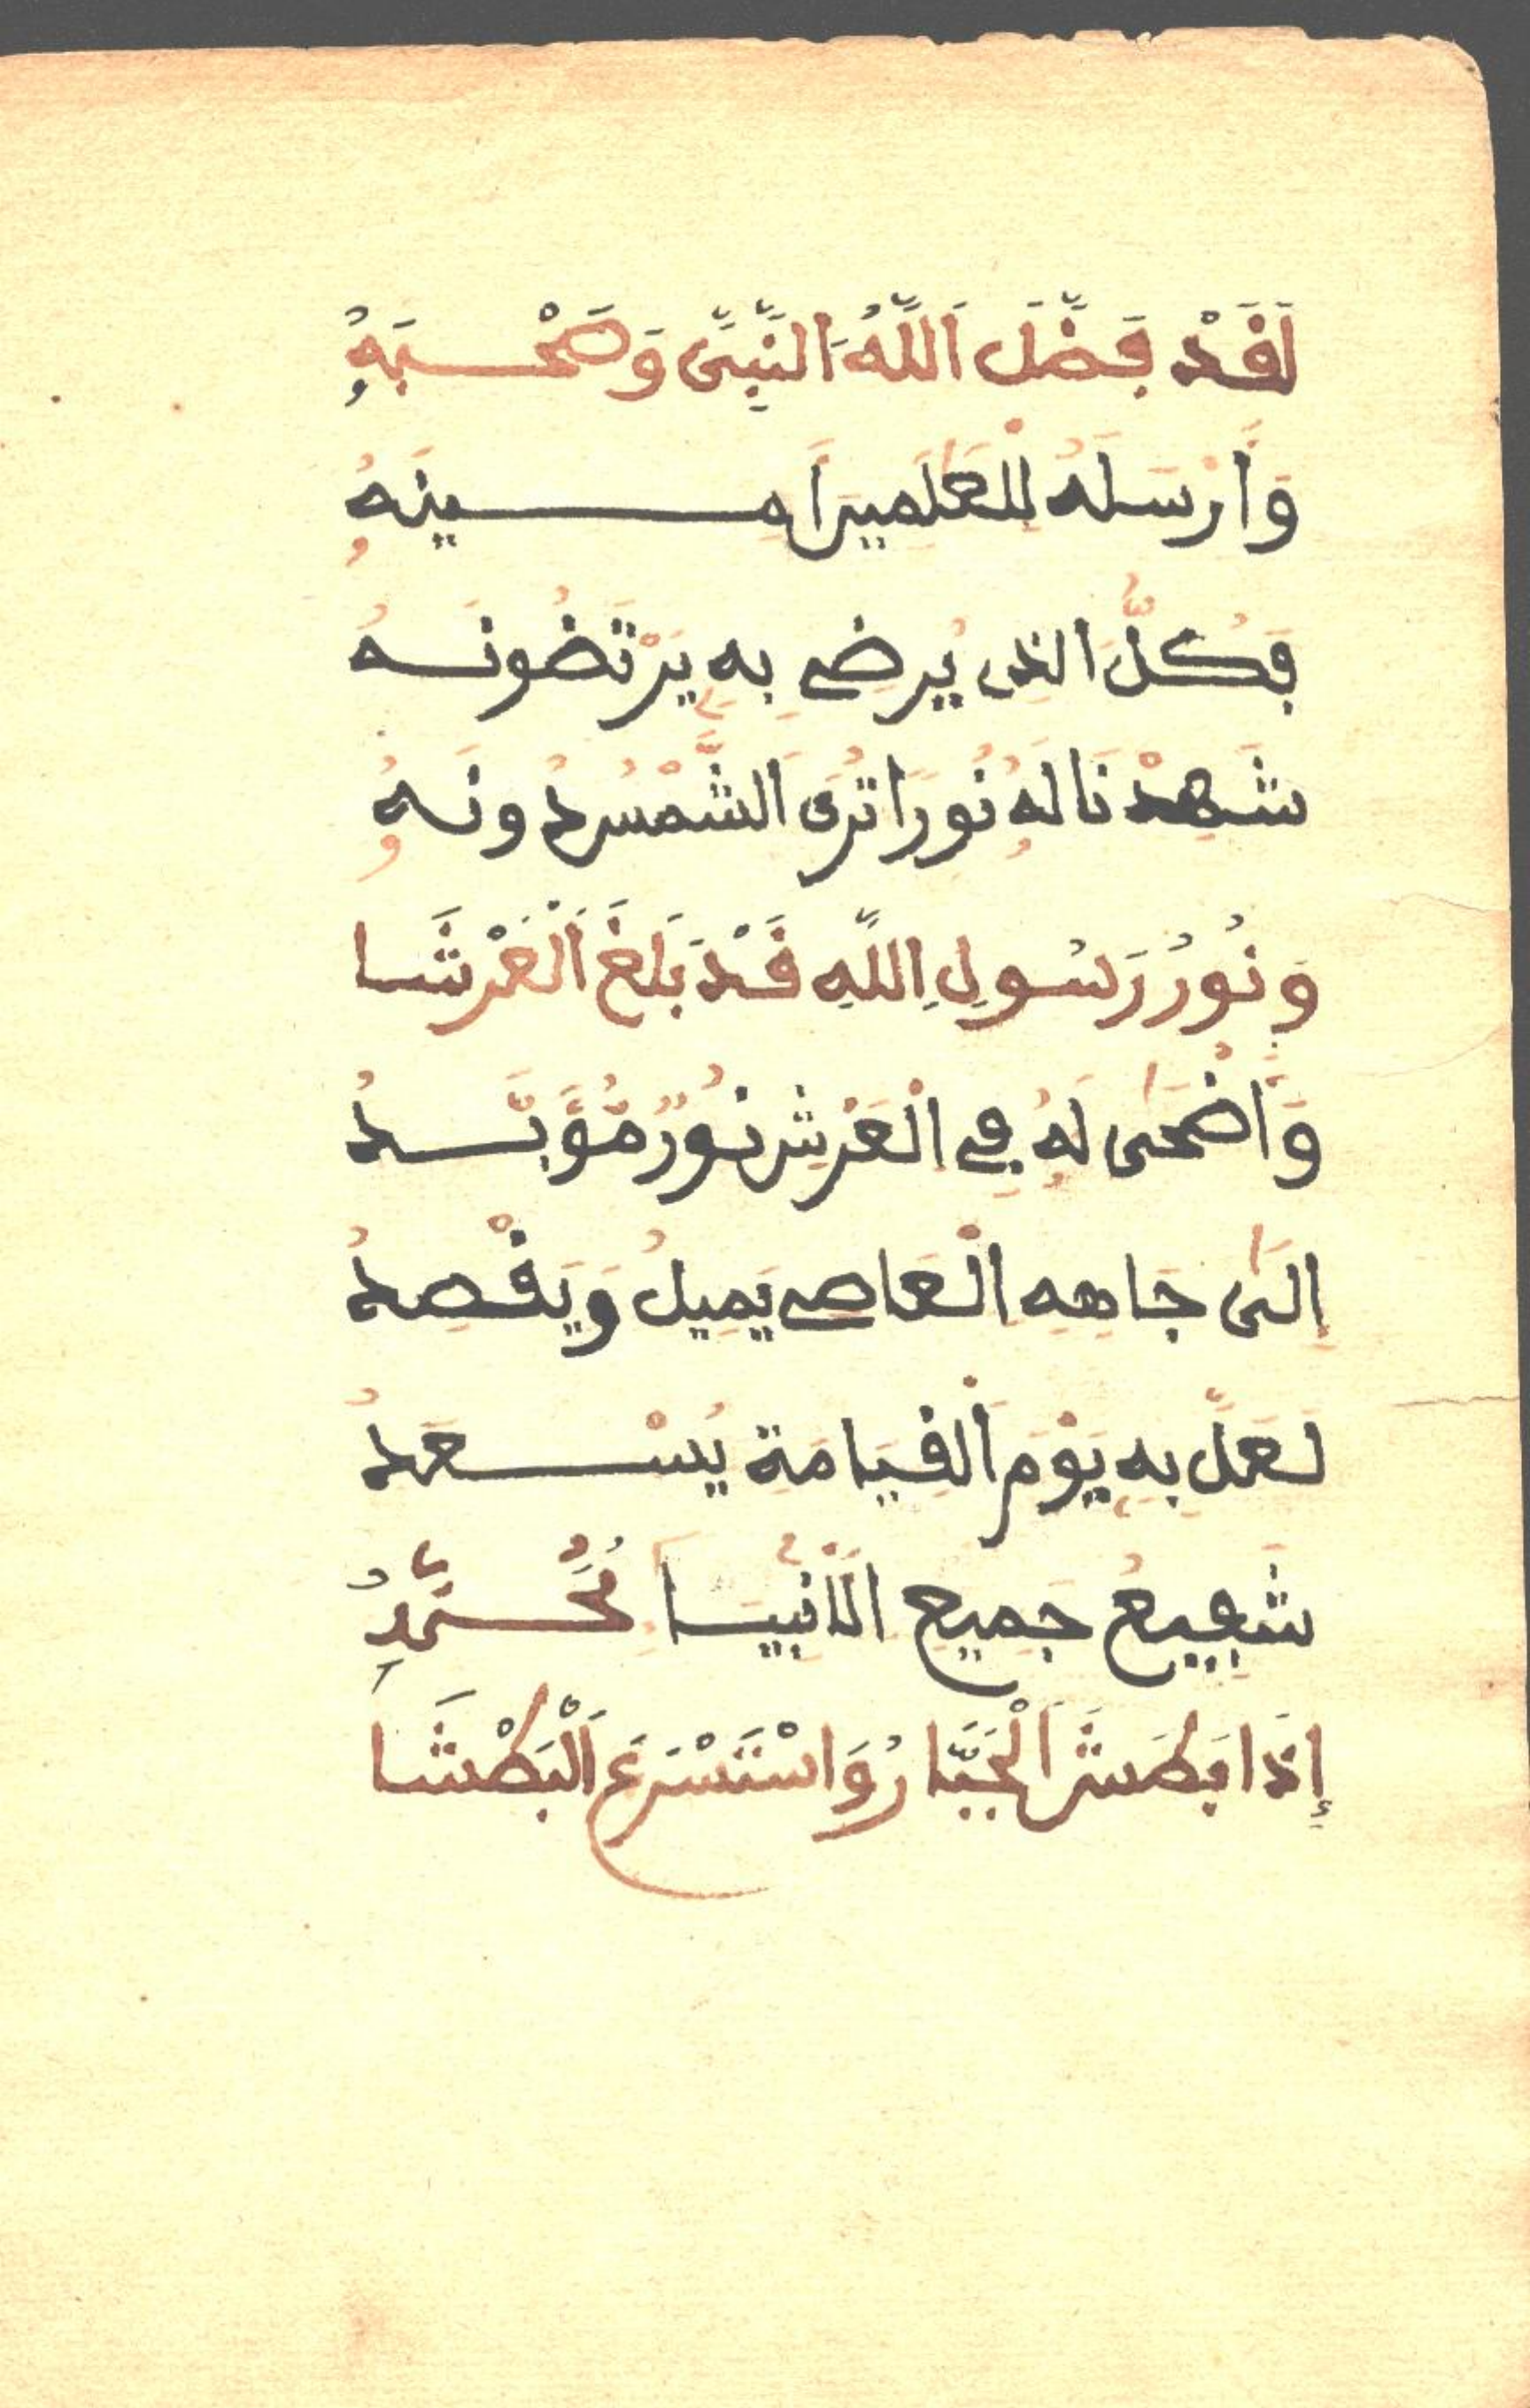 لَقَدْ فَضَّلَ اَللَّهُ اَلنَّبِىَّ وَصَحْبَهُ
وَأَرْسَلَهُ لِلْعَٰلَمِينَ أَمِينَهُ
فَكُلُّ الذِى يُرضِى بِهِ يَرْتَضُونَهُ
شَهِدْنَا لَهُ نُورًا تُرَى اَلشَّمْسُ دُونَهُ
وَنُورُ رَسُولِ اِللَّهِ قَدْ بَلَغَ اَلْعَرْشَا
وَأَضْحَىٰ لَهُ فِى اِلْعَرْشِ نُورٌ مُّؤَبَّدُ
إِلَىٰ جَاهِهِ اِلْعَاصِى يَمِيلُ وَيَقْصِدُ
لَعَلَّ بِهِ يَوْمَ اَلْقِيَامَةِ يُسْعَدُ
شَفِيعُ جَمِيعِ اِلَانْبِيَا مُحَمَّدُ
إِذَا بَطَشَ اَلْجَبَّارُ وَاسْتَسْرَعَ اَلْبَطْشَا